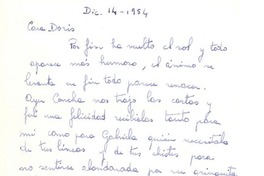 Dic. 14 - 1954
Cara Doris
Por fin ha vuelto el sol y todo
aparece más humano, el ánimo se
levanta en fin todo parece renacer.
Ayer Concha nos trajo las cartas y
fué una felicidad recibirlas tanto para
mí como para Gabriela quien necesitaba
de tus líneas y de tus chistes para
no sentirse abandonada por su